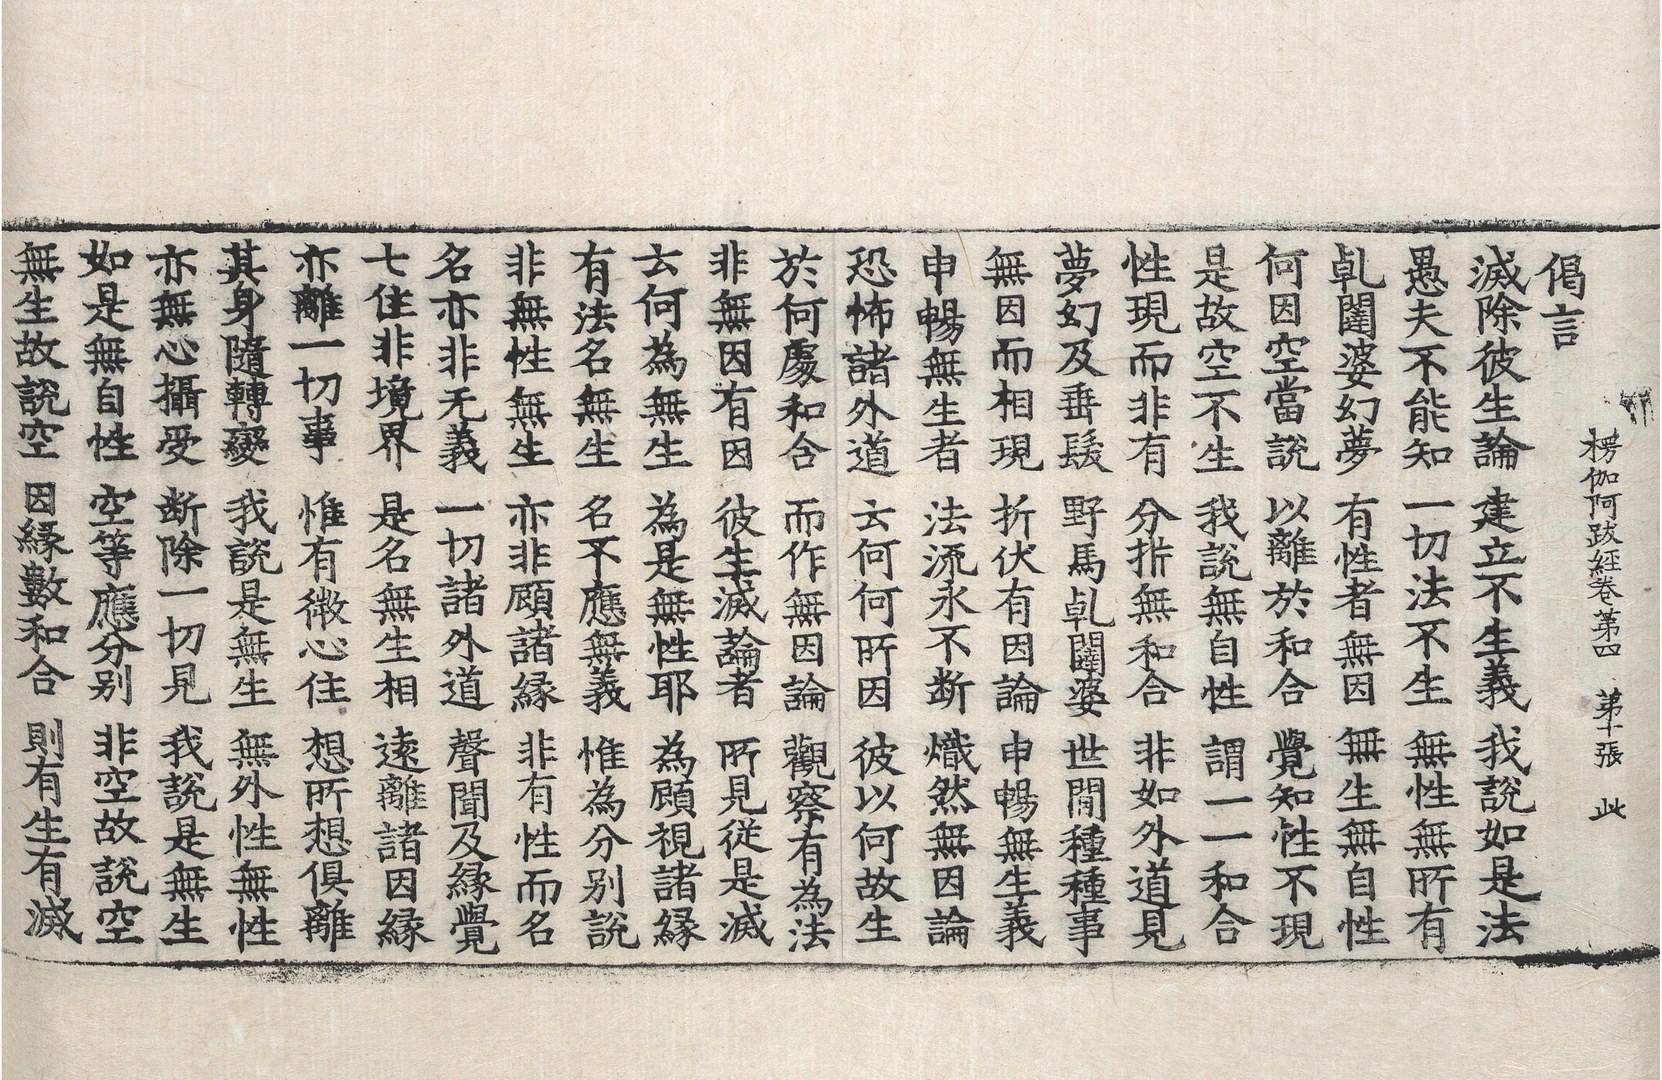 楞伽阿跋經卷第四　第十張　此
偈言
滅除彼生論　建立不生義　我說如是法
愚夫不能知　一切法不生　無性無所有
乹闥婆幻夢　有性者無因　無生無自性
何因空當說　以離於和合　覺知性不現
是故空不生　我說無自性　謂一一和合
性現而非有　分析無和合　非如外道見
夢幻及垂髮　野馬乹闥婆　世間種種事
無因而相現　折伏有因論　申暢無生義
申暢無生者　法流永不断　熾然無因論
恐怖諸外道　云何何所因　彼以何故生
於何處和合　而作無因論　觀察有為法
非無因有因　彼生滅論者　所見從是滅
云何為無生　為是無性耶　為顧視諸緣
有法名無生　名不應無義　惟為分別說
非無性無生　亦非顧諸緣　非有性而名
名亦非无義　一切諸外道　聲聞及緣覺
七住非境界　是名無生相　遠離諸因緣
亦離一切事　惟有微心住　想所想俱離
其身隨轉變　我說是無生　無外性無性
亦無心攝受　断除一切見　我說是無生
如是無自性　空等應分別　非空故說空
無生故說空　因緣數和合　則有生有滅